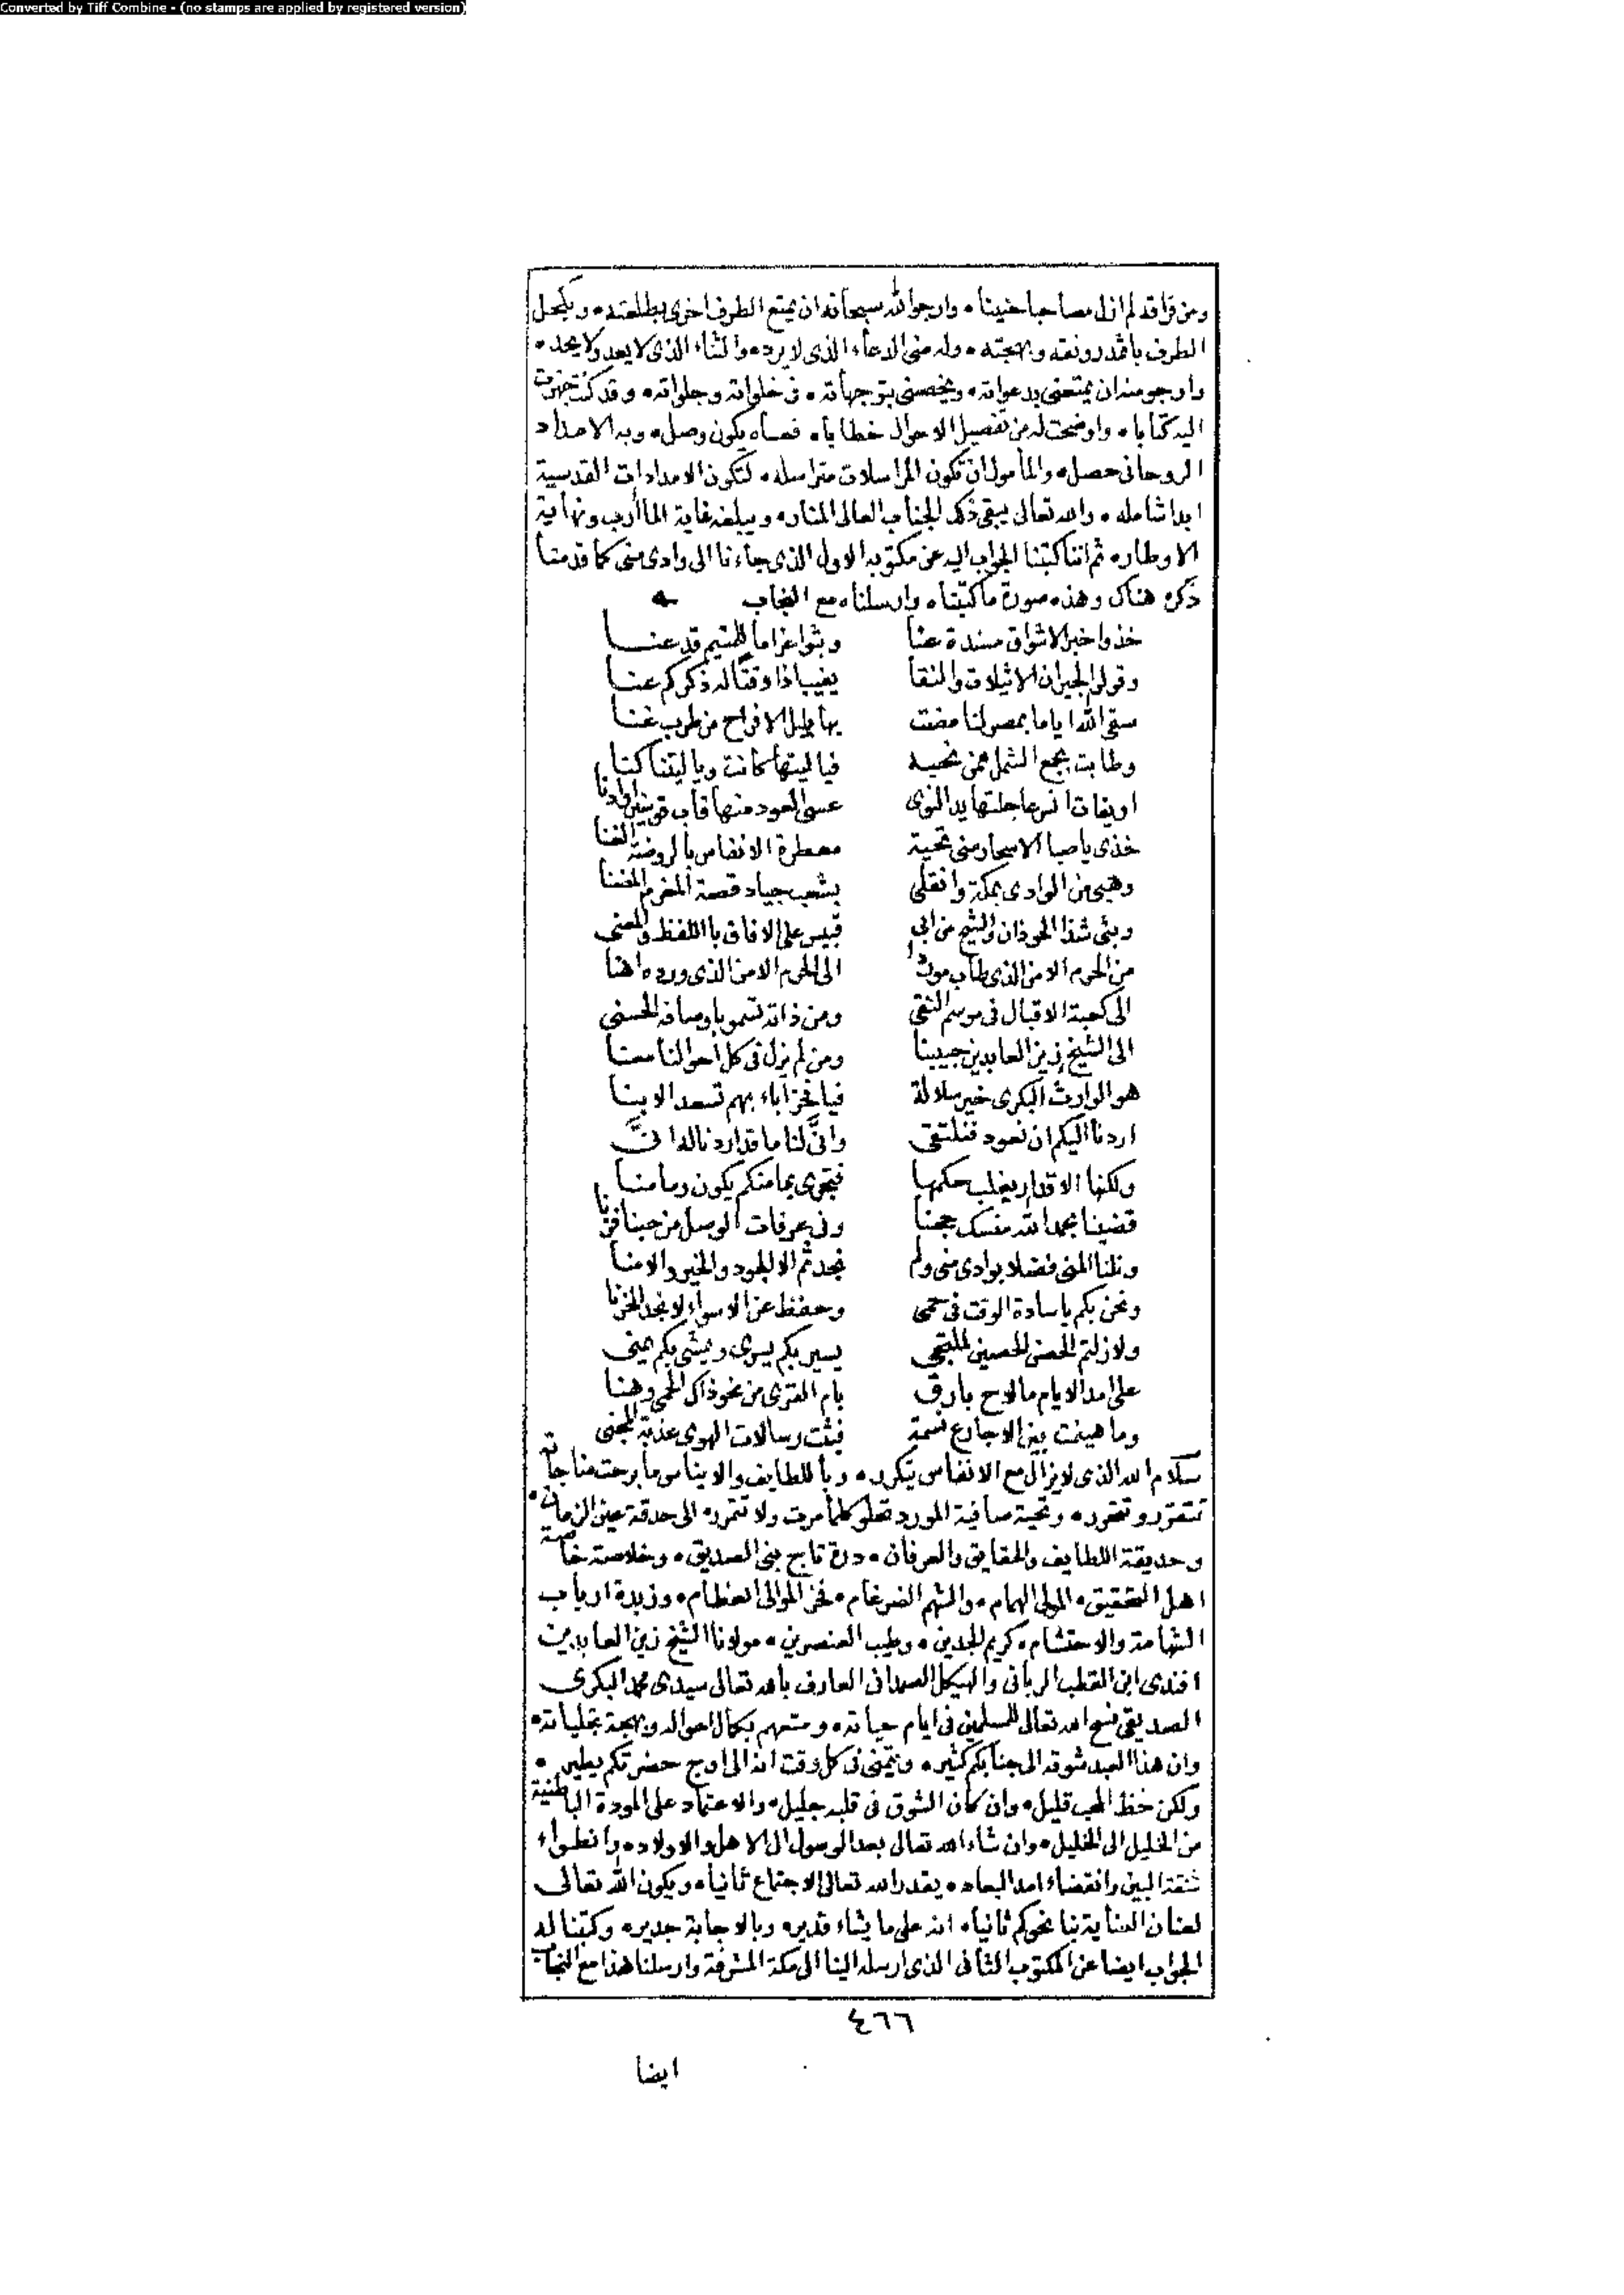 Converted by Tiff Combine - (no stamps are applied by registered version)
ومن فراقه لم ازل مصاحبا حنينا، وارجو الله سبحانه ان يمتع الطرف اخرى بطلعته، ويكحل
الطرف باثمد رونقه وبهجته، وله منى الدعاء الذى لا يرد، والثناء الذى لا يعد ولا يحد،
وارجو منه ان يمتعنى بدعواته، ويخصنى بتوجهاته، فى خلواته وجلواته، وقد كنت جهزت
اليه كتابا، واوضحت له من تفصيل الاحوال خطابا، فعساه يكون وصل، وبه الامداد
الروحانى حصل، والمأمول ان تكون المراسلات متراسله، لتكون الامدادات القدسية
ابدا شامله، والله تعالى يبقى ذلك الجناب العالى المنار، ويبلغه غاية المأرب ونهاية
الاوطار، ثم اننا كتبنا الجواب اليه عن مكتوبه الاول الذى جاءنا الى وادى منى كما قدمنا
ذكره هناك وهذه صورة ما كتبناه وارسلناه مع النجاب
خذوا خبر الاشواق مسندة عنا وبثوا غراما للمتيم قد عنا
وقولوا لجيران الاثيلات والنقا يغيب اذا وقتا له ذكركم عنا
سقى الله اياما بمصر لنا مضت بها بلبل الافراح من طرب غنا
وطابت بجمع الشمل ممن نحبه فيا ليتها كانت ويا ليتنا كنا
اويقات انس عاجلتها يد النوى عسى العود منها قاب قوسين او ادنا
خذى يا صبا الاسحار منى تحية معطرة الانفاس بالروضة الغنا
وهبى من الوادى بمكة وانقلى بشعب جياد قصة المغرم المضنا
وبثى شذا الحوذان والشيح من ابى قبيس على الافاق باللفظ والمعنى
من الحرم الامن الذى طاب الى الحرم الامن الذى ورده اهنا
الى كعبة الاقبال فى موسم التقى ومن ذاته تسمو باوصافه الحسنى
الى الشيخ زين العابدين حبيبنا ومن لم يزل فى كل احوالنا معنا
هو الوارث البكرى خير سلالة فيا فخر اباء بهم تسعد الابنا
اردنا اليكم ان نعود فنلتقى وانَّى لنا ما قد اردنا له انَّى
ولكنها الاقدار يغلب حكمها فتجرى بما منكم يكون وما منا
قضينا بحمد الله منسك حجنا وفى عرفات الوصل من حبنا فزنا
ونلنا المنى فضلا بوادى منى ولم نجد ثم الا الجود والخير والامنا
ونحن بكم يا سادة الوقت فى حمى وحفظ عن الاسواء لا نجد الحزنا
ولازلتم الحصن الحصين لملتجى يسير بكم يسرى ويمشى بكم يمنى
على امد الايام ما لاح بارق بام القرى من نحو ذاك الحمى وهنا
وما هينمت بين الاجارع نسمة فبثت رسالات الهوى عذبة المجنى
سلام الله الذى لا يزال مع الانفاس يتكرر، وباللطايف والايناس ما برحت مناجاته
تتقرر وتتحرر، وتحية صافية المورد تحلو كلما مرت ولا تتمرر، الى حدقة عين الزمان،
وحديقة اللطايف والحقايق والعرفان، درة تاج بنى الصديق، وخلاصة خاصة
اهل التحقيق، المولى الهمام، والشهم الضرغام، فخر الموالى العظام، وزبدة ارباب
الشهامة والاحتشام، كريم الجدين، وطيب العنصرين، مولانا الشيخ زين العابدين
افندى ابن القطب الربانى والهيكل الصمدانى العارف بالله تعالى سيدى محمد البكرى
الصديقى فسح الله تعالى للمسلمين فى ايام حياته، ومتعهم بكمال احواله وبهجة تجلياته،
وان هذا العبد شوقه الى جنابكم كثير، ويتمنى فى كل وقت انه الى اوج حضرتكم يطير،
ولكن حظ المحب قليل، وان كان الشوق فى قلبه جليل، والاعتماد على المودة الباطنية
من الخليل الى الخليل، وان شاء الله تعالى بعد الوصول الى الاهل والاولاد، وانطواء
شقة البين وانقضاء امد البعاد، يقدر الله تعالى الاجتماع ثانيا، ويكون الله تعالى
لعنان العناية بنا نحوكم ثانيا، انه على ما يشاء قدير، وبالاجابة جدير، وكتبنا له
الجواب ايضا عن المكتوب الثانى الذى ارسله الينا الى مكة المشرفة وارسلنا هذا مع النجاب
٤٦٦
ايضا